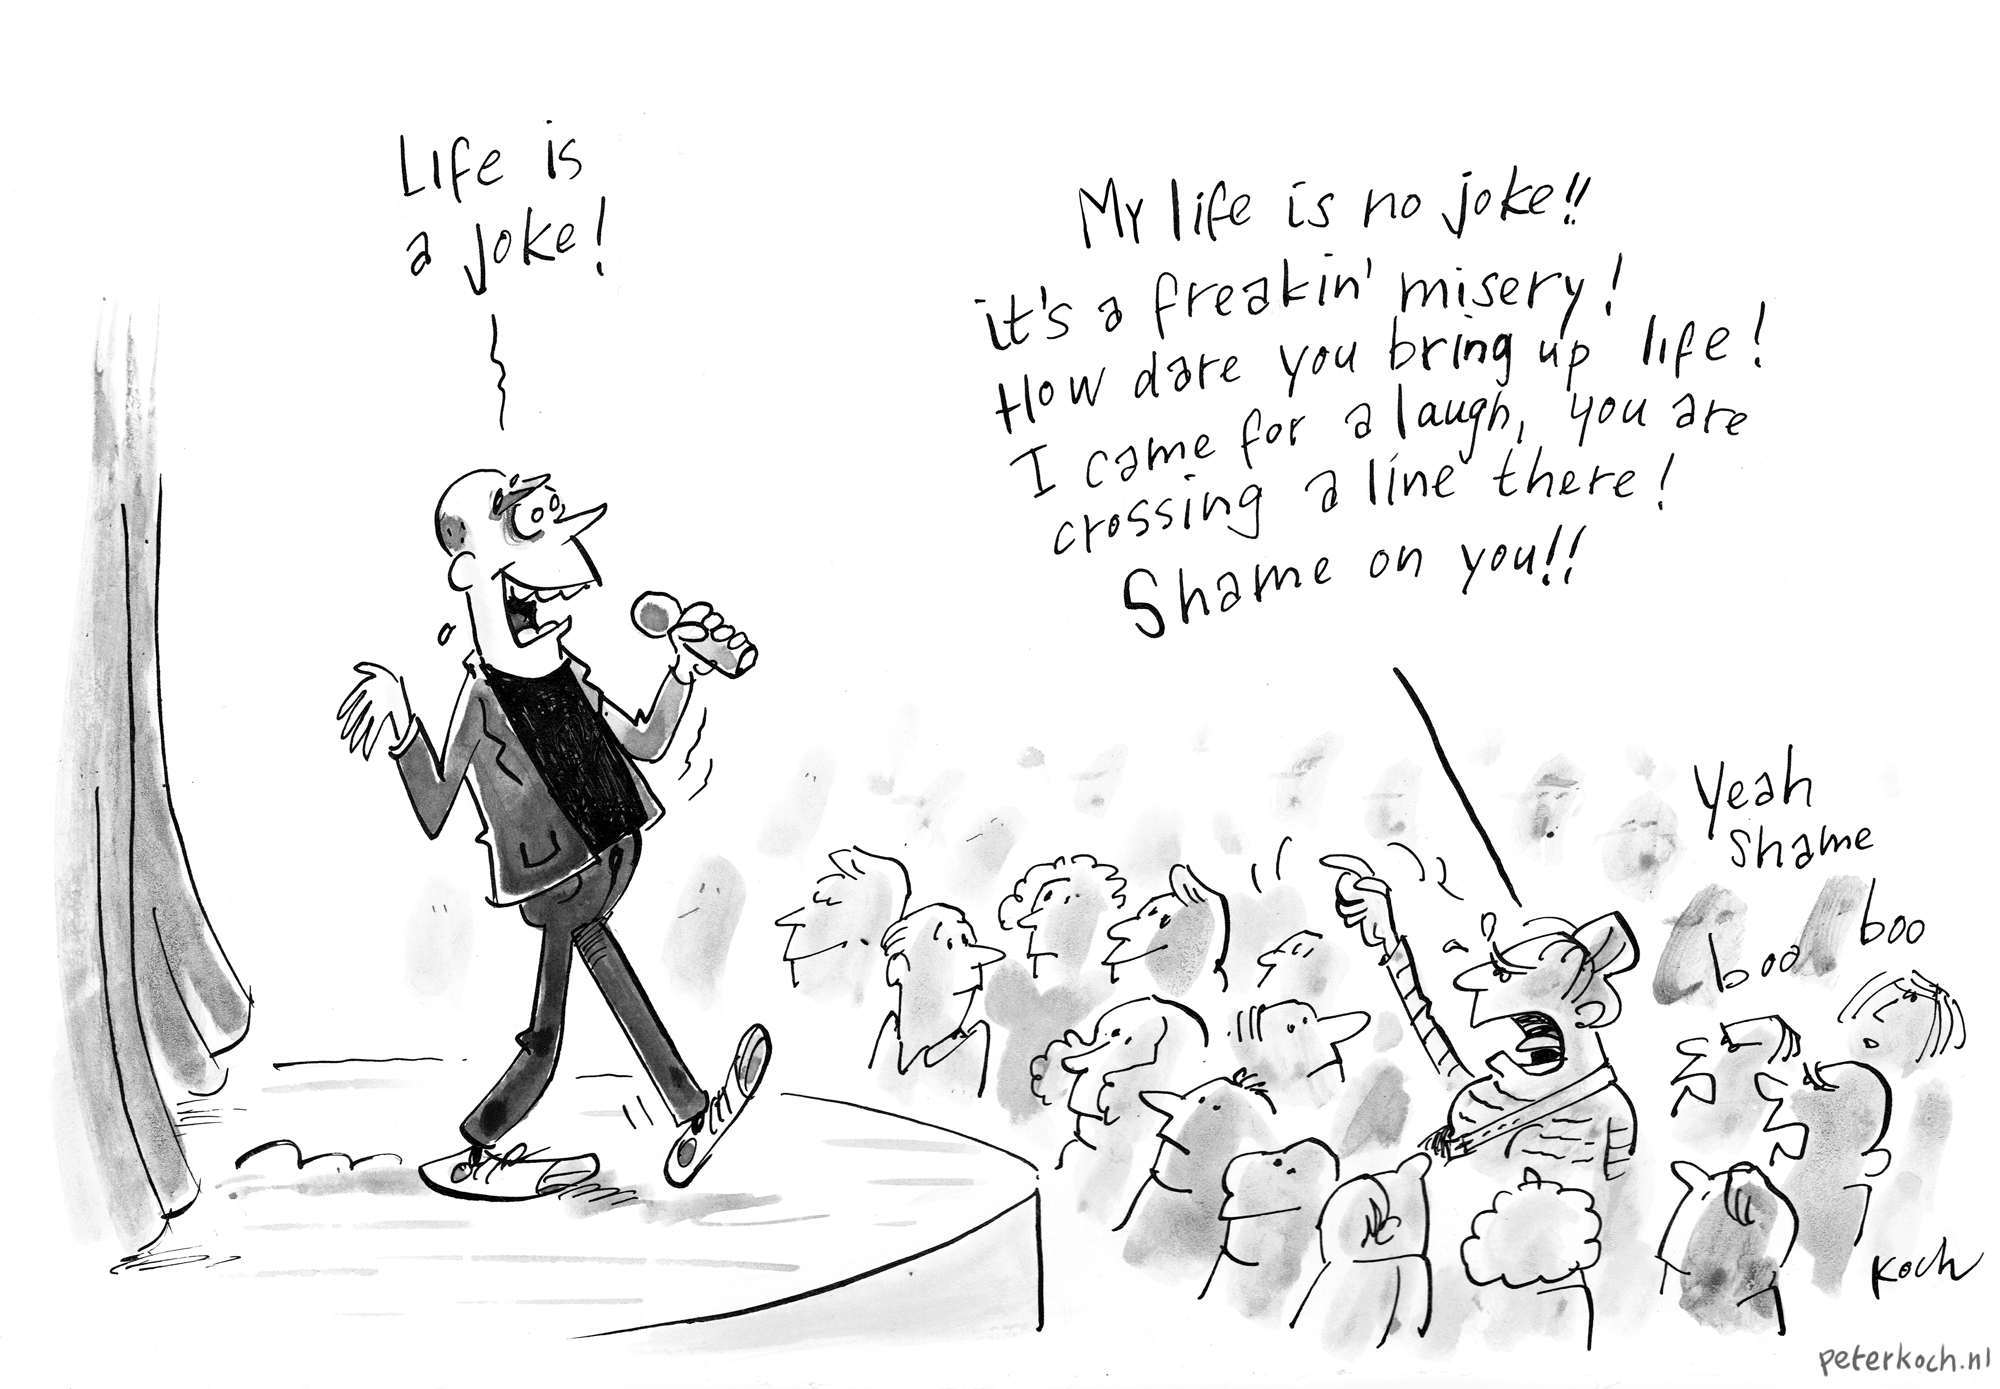 Life is
a joke!
My life is no joke!!
it's a freakin' misery!
How dare you bring up life!
I came for a laugh, you are
crossing a line there!
Shame on you!!
Yeah
shame
boo
boo
Koch
peterkoch.nl